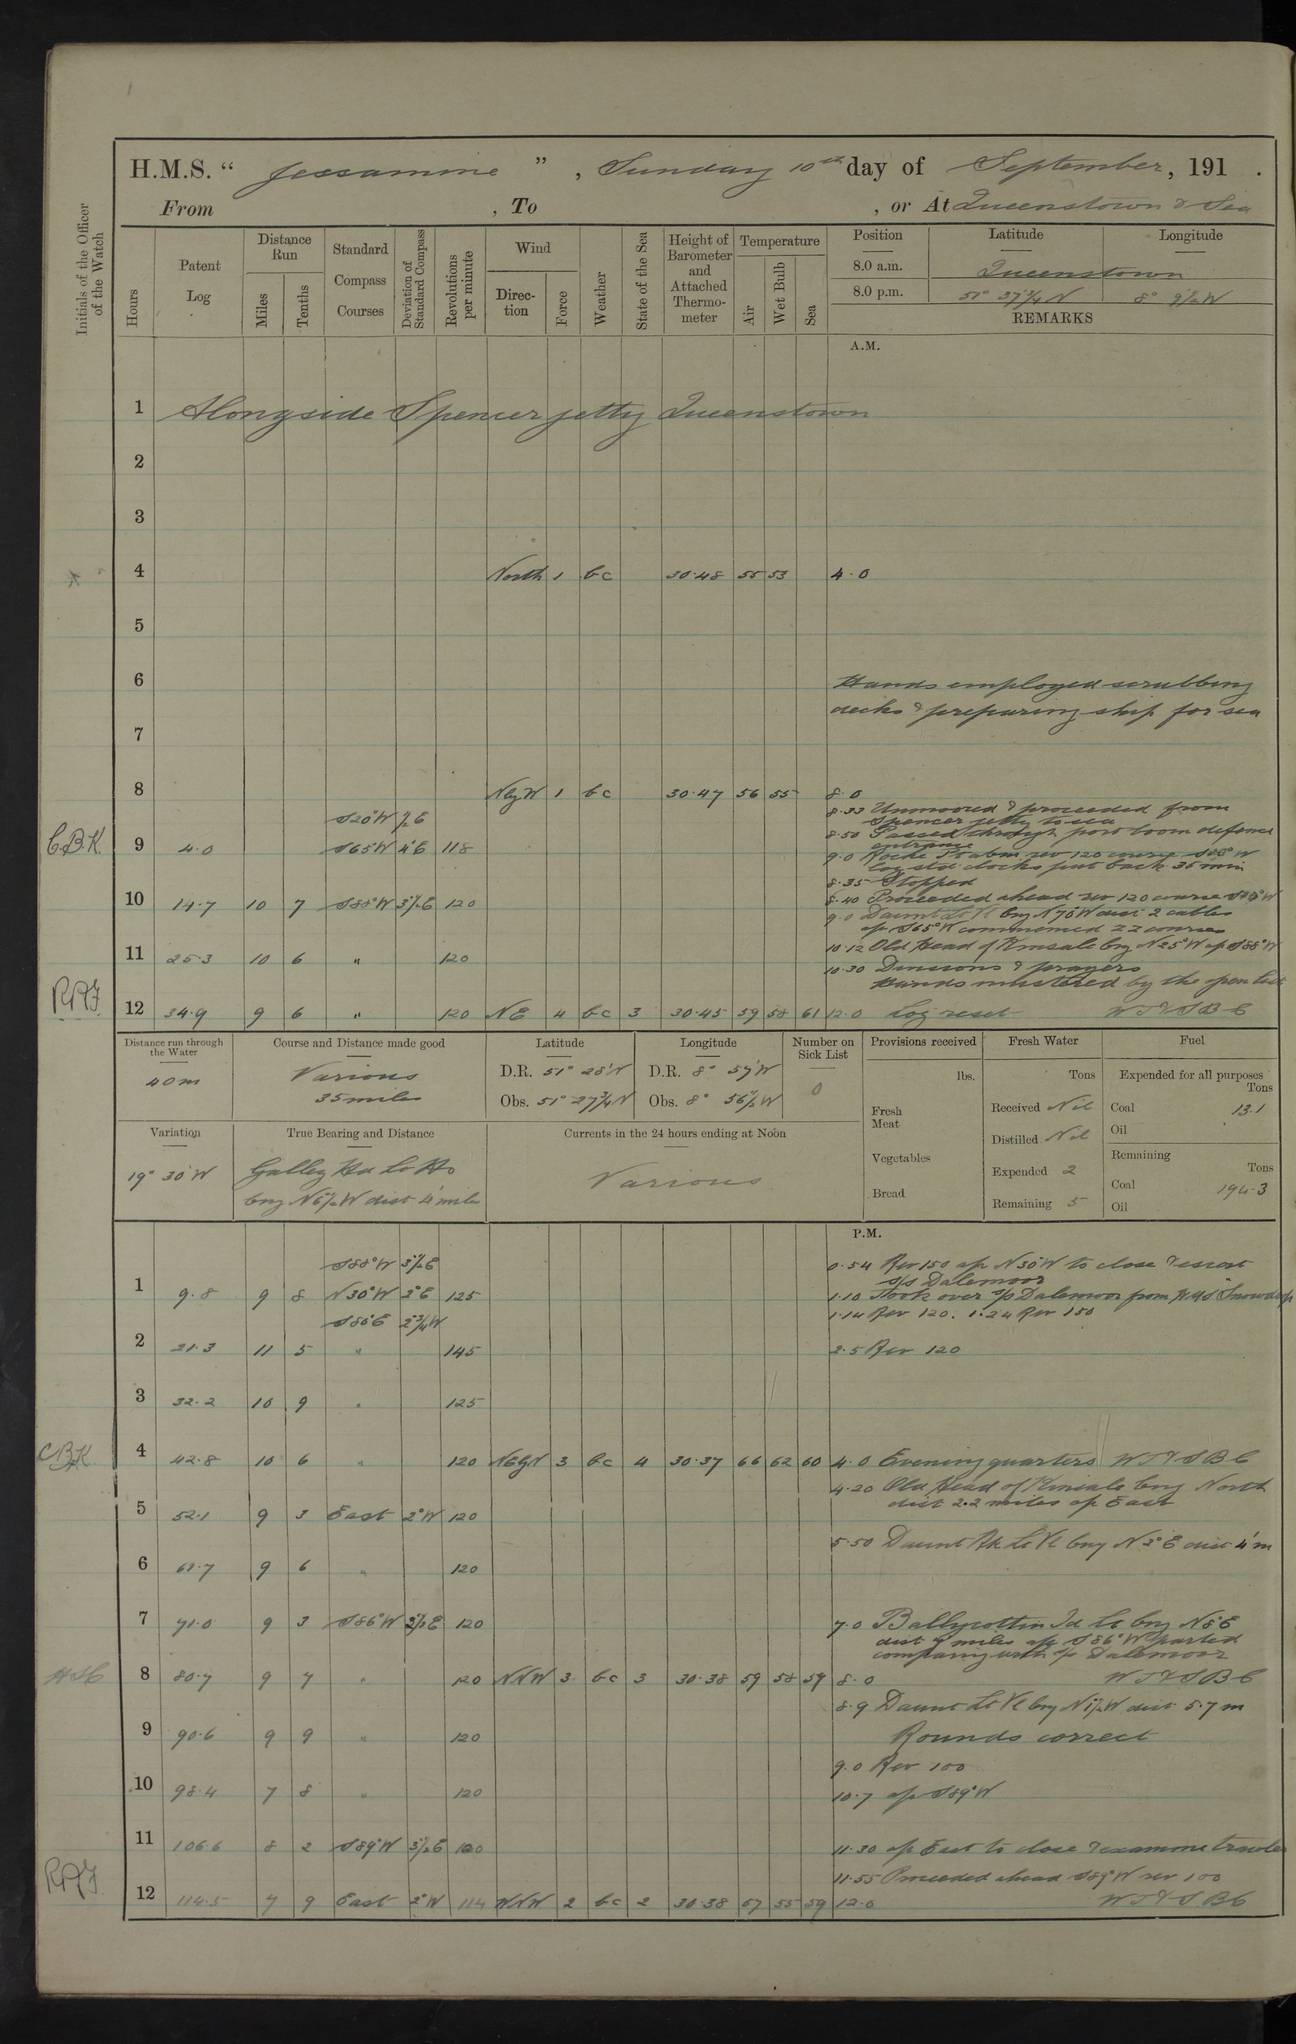 H.M.S. “ Jessamine ” , Sunday 10th day of September, 191 .
From , To , or At Queenstown & Sea
Initials of the Officer of the Watch
Hours
Patent Log
Distance Run
Miles
Tenths
Standard Compass Courses
Deviation of Standard Compass
Revolutions per minute
Wind
Direction
Force
Weather
State of the Sea
Height of Barometer and Attached Thermometer
Temperature
Air
Wet Bulb
Sea
Position Latitude Longitude
8.0 a.m. Queenstown
8.0 p.m. 51° 37¾ N 8° 9½ W
REMARKS
A.M.
1 Alongside Spencer jetty Queenstown
2
3
4 North 1 bc 30.48 55 53 4.0
5
6 Hands employed scrubbing
decks & preparing ship for sea
7
8 NbyW 1 bc 30.47 56 55 8.0
8.33 Unmoored & proceeded from
Spencer jetty to sea
S20°W ½E
8.50 Passed through port boom defence
entrance
C.B.K. 9 4.0 S65W 4°E 118
9.0 Roche Pt abm rev 120 course S20°W
log std clocks put back 35 min
8.35 Stopped
10 14.7 10 7 S88°W 5½E 120 8.40 Proceeded ahead rev 120 course S20°W
9.0 Daunt Lt Vl brg N70W dist 2 cables
a/c S65°W commenced ZZ courses
10.12 Old Head of Kinsale brg N25°W a/c S88°W
11 25.3 10 6 " 120
10.30 Divisions & prayers
Hands mustered by the open list
12 34.9 9 6 " 120 NE 4 bc 3 30.45 59 58 61 12.0 Log reset WT&SBC
Distance run through the Water 40m
Course and Distance made good Various 35 miles
Latitude D.R. 51° 28'N Obs. 51° 27¾N
Longitude D.R. 8° 57'W Obs. 8° 56½W
Number on Sick List 0
Provisions received
lbs.
Fresh Meat
Vegetables
Bread
Fresh Water
Tons
Received Nil
Distilled Nil
Expended 2
Remaining 5
Fuel
Expended for all purposes
Tons
Coal 13.1
Oil
Remaining
Tons
Coal 194.3
Oil
Variation 19° 30'W
True Bearing and Distance Galley Hd Lt Ho
brg N6½W dist 4 miles
Currents in the 24 hours ending at Noon Various
P.M.
S88°W 5½E 0.54 Rev 150 a/c N30°W to close & escort
s/s Dalemoor
1 9.8 9 8 N30°W 2°E 125 1.10 Took over s/s Dalemoor from HMS Snowdrop
S86E 2¾W 1.14 Rev 120. 1.24 Rev 150
2 21.3 11 5 " 145 2.5 Rev 120
3 32.2 10 9 " 125
C.B.K. 4 42.8 10 6 " 120 NEbyN 3 bc 4 30.37 66 62 60 4.0 Evening quarters WT&SBC
4.20 Old Head of Kinsale brg North
dist 2.2 miles a/c East
5 52.1 9 3 East 2°W 120
5.50 Daunt Rk Lt Vl brg N3°E dist 4'm
6 61.7 9 6 " 120
7 71.0 9 3 S86°W 5½E 120 7.0 Ballycottin Id Lt brg N8°E
dist 7 miles a/c S86°W parted
company with s/s Dalemoor
8 80.7 9 7 " 120 NNW 3 bc 3 30.38 59 58 59 8.0 WT&SBC
8.9 Daunt Lt Vl brg N1½W dist 5.7 m
9 90.6 9 9 " 120 Rounds correct
9.0 Rev 100
10 98.4 7 8 " 120 10.7 a/c S89°W
11 106.6 8 2 S89°W 5½E 100 11.30 a/c East to close & examine trawler
11.55 Proceeded ahead S89°W rev 100
12 114.5 7 9 East 2°W 114 WNW 2 bc 2 30.38 57 55 59 12.0 WT&SBC